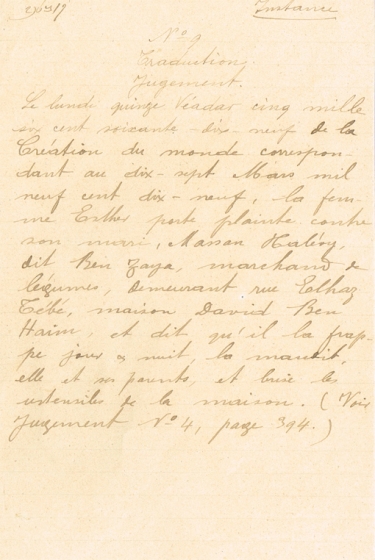 Instance
No 9
Traduction
Jugement.
Le lundi quinze Véadar cinq mille
six cent soixante-dix-neuf de la
Création du monde correspon-
dant au dix-sept Mars mil
neuf cent dix-neuf, la fem-
me Esther porte plainte contre
son mari, Masson Halévy,
dit Ben Zaza, marchand de
légumes, demeurant rue Elhaz
Tébé, maison David Ben
Haim, et dit qu'il la frap-
pe jour & nuit, la maudit,
elle et ses parents, et brise les
ustensiles de la maison. (Voir
Jugement No 4, page 394.)